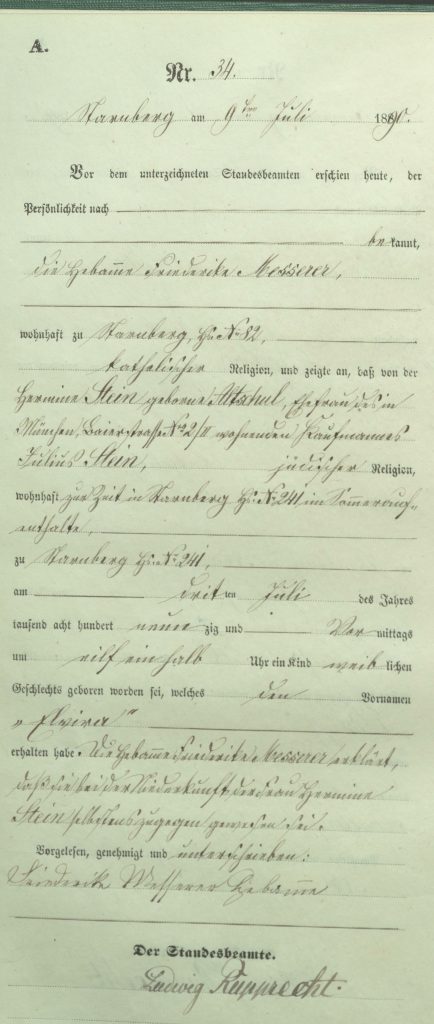 A.
Nr. 34.
Starnberg am 9ten Juli 1890.
Vor dem unterzeichneten Standesbeamten erschien heute, der
Persönlichkeit nach
bekannt,
die Hebamme Friederike Messerer,
wohnhaft zu Starnberg, Hs. No 82,
katholischer Religion, und zeigte an, daß von der
Hermine Stein geborne Ehefrau des in
München, Baierstrasse No 92/II wohnenden Kaufmannes
Julius Stein, jüdischer Religion,
wohnhaft zur Zeit in Starnberg Hs. No 241 im Sommerauf-
enthalte,
zu Starnberg Hs. No 241,
am dritten Juli des Jahres
tausend acht hundert neunzig und Vormittags
um eilf ein halb Uhr ein Kind weiblichen
Geschlechts geboren worden sei, welches den Vornamen
„Elvira"
erhalten habe. Die Hebamme Friederike Messerer erklärt,
daß sie bei der Niederkunft der Frau Hermine
Stein selbst zugegen gewesen sei.
Vorgelesen, genehmigt und unterschrieben:
Friederike Messerer Hebamme
Der Standesbeamte.
Ludwig Rupprecht.